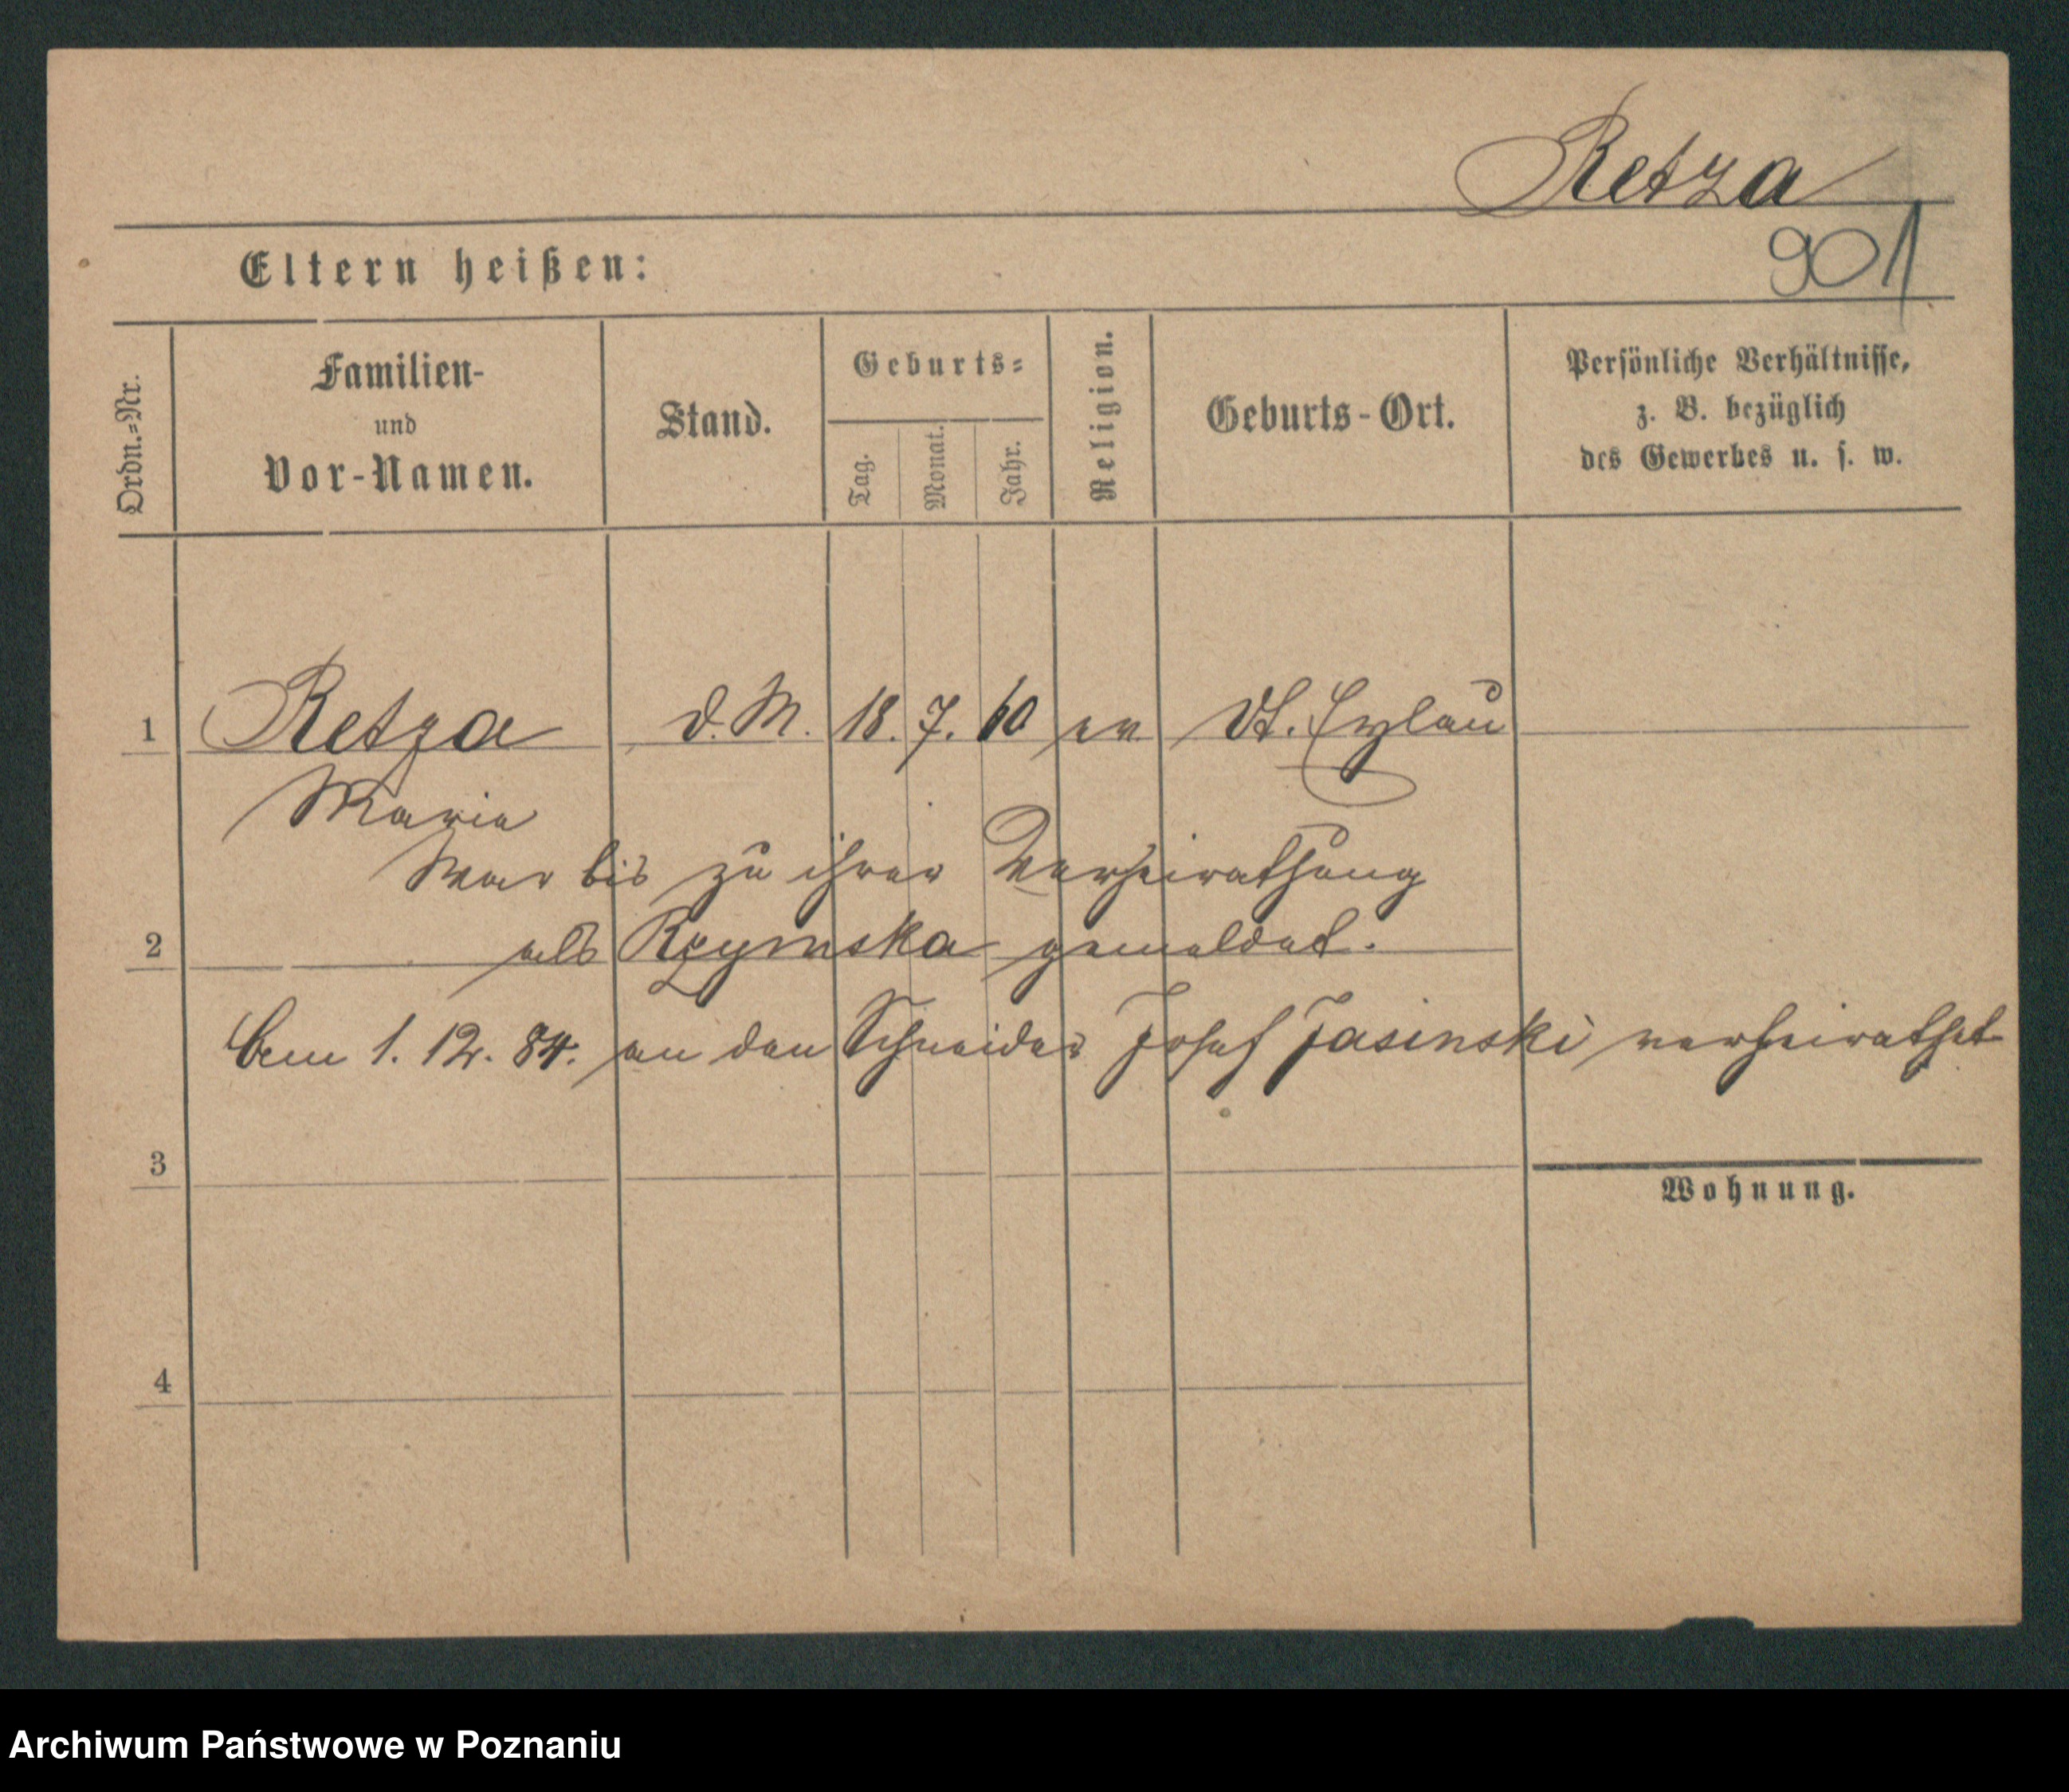 Retza
901
Eltern heißen:
Ordn.=Nr.
Familien-
und
Vor-Namen.
Stand.
Geburts=
Tag.
Monat.
Jahr.
Religion.
Geburts-Ort.
Persönliche Verhältnisse,
z. B. bezüglich
des Gewerbes u. s. w.
1 Retza d. M. 18. 7. 60 ev Dt. Eylau
Marie
War bis zu ihrer Verheirathung
2 als Rzymska gemeldet.
1. 12. 84. an den Schneider Josef Jasinski verheirathet
3
Wohnung.
4
Archiwum Państwowe w Poznaniu